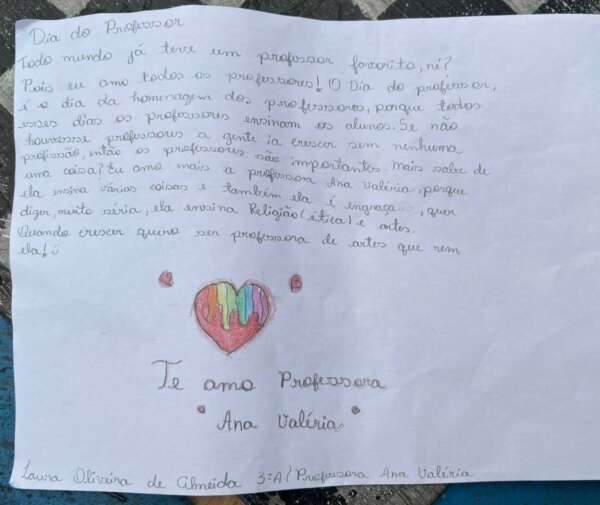 Dia do Professor
Todo mundo já teve um professor favorito, né?
Pois eu amo todos os professores! O Dia do professor,
é o dia da homenagem dos professores, porque todos
esses dias os professores ensinam os alunos. Se não
houvesse professores a gente ia crescer sem nenhuma
profissão, então os professores são importantes. Mais sabe de
uma coisa? Eu amo mais a professora Ana Valéria, porque
ela ensina várias coisas e também ela é engraça..., quer
dizer, muito séria, ela ensina Religião (ética) e artes.
Quando crescer quero ser professora de artes que nem
ela! :)
Te amo Professora
Ana Valéria
Laura Oliveira de Almeida 3ºA / Professora Ana Valéria